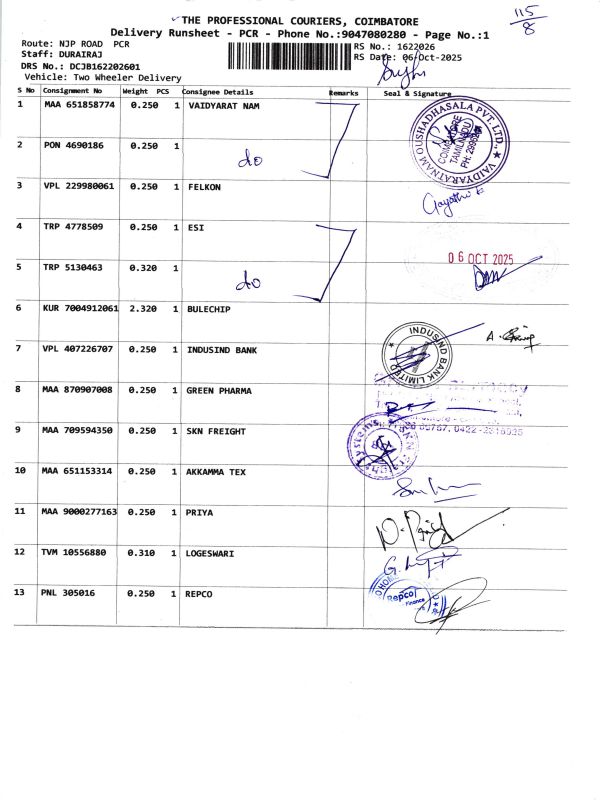 THE PROFESSIONAL COURIERS, COIMBATORE
115/8
Delivery Runsheet - PCR - Phone No.:9047080280 - Page No.:1
Route: NJP ROAD PCR
RS No.: 1622026
Staff: DURAIRAJ
RS Date: 06-Oct-2025
DRS No.: DCJB162202601
Vehicle: Two Wheeler Delivery
S No Consignment No Weight PCS Consignee Details Remarks Seal & Signature
1 MAA 651858774 0.250 1 VAIDYARAT NAM
VAIDYARATNAM OUSHADHASALA PVT. LTD.,
COIMBATORE
TAMILNADU
2 PON 4690186 0.250 1
do
3 VPL 229980061 0.250 1 FELKON
4 TRP 4778509 0.250 1 ESI
06 OCT 2025
5 TRP 5130463 0.320 1
do
6 KUR 7004912061 2.320 1 BULECHIP
7 VPL 407226707 0.250 1 INDUSIND BANK
INDUSIND BANK LIMITED
8 MAA 870907008 0.250 1 GREEN PHARMA
9 MAA 709594350 0.250 1 SKN FREIGHT
10 MAA 651153314 0.250 1 AKKAMMA TEX
11 MAA 9000277163 0.250 1 PRIYA
12 TVM 10556880 0.310 1 LOGESWARI
13 PNL 305016 0.250 1 REPCO
Repco